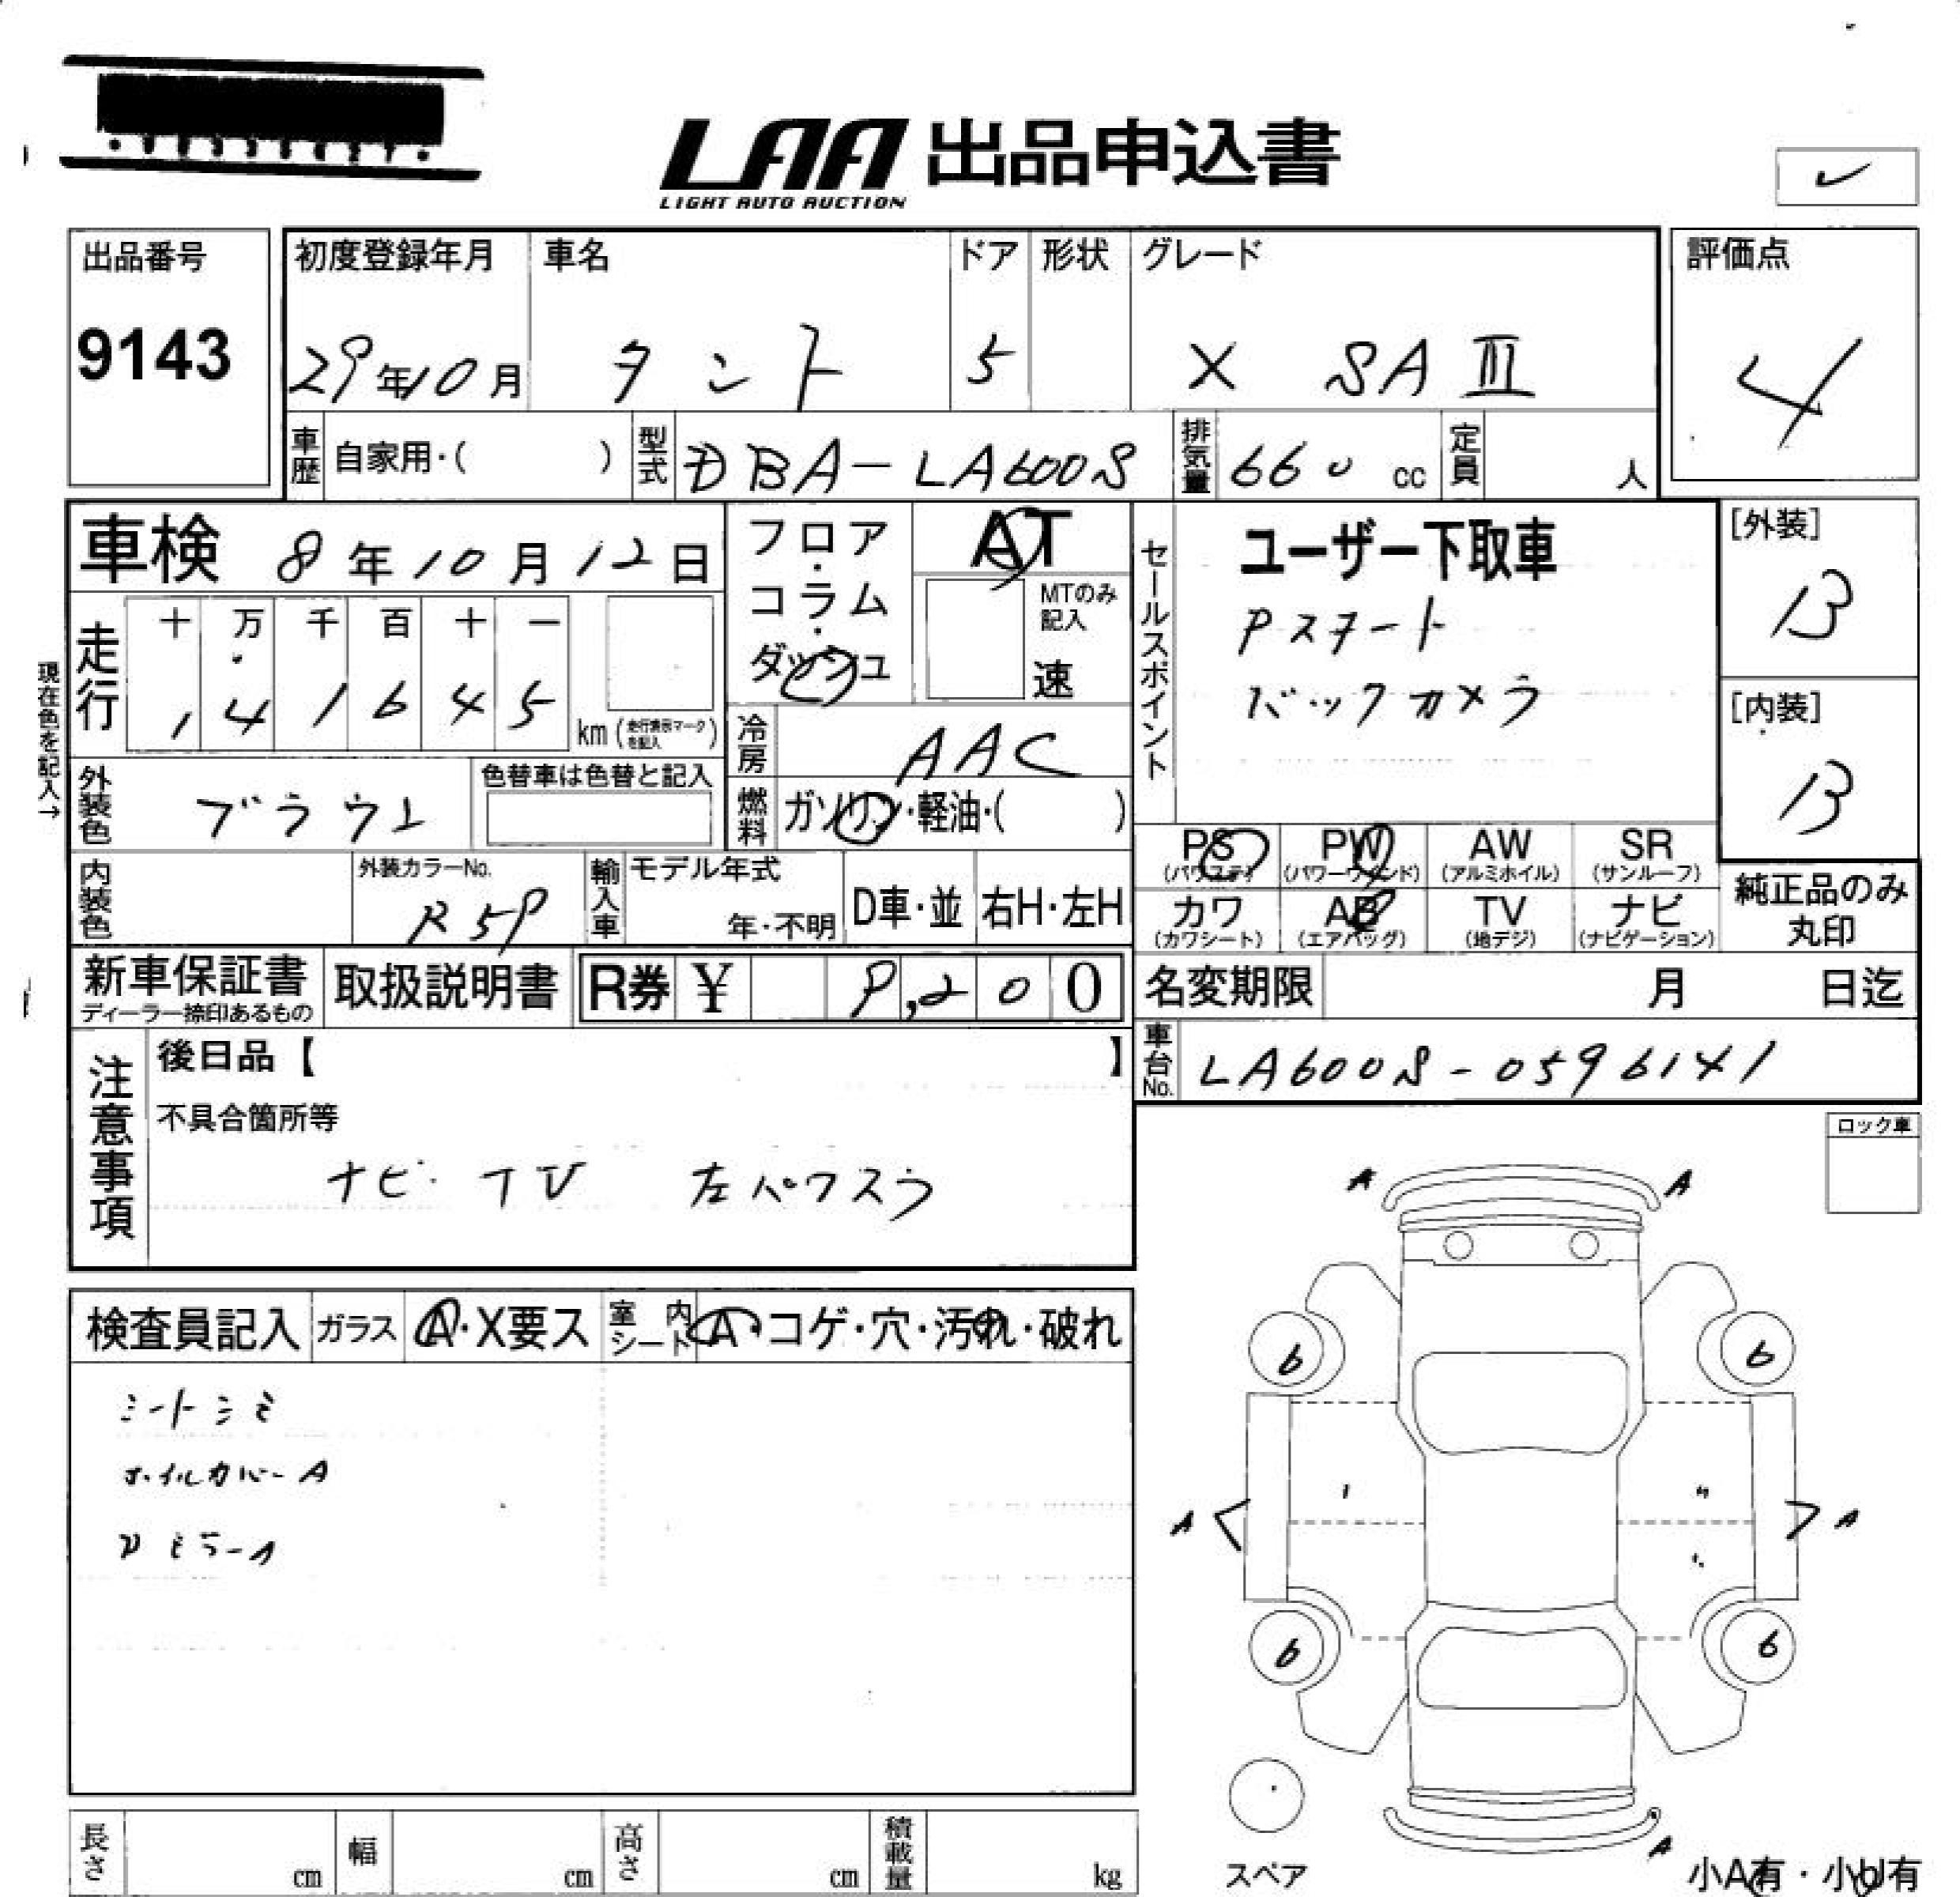 LAA 出品申込書
LIGHT AUTO AUCTION
出品番号
9143
初度登録年月
29年10月
車名
タント
ドア
5
形状
グレード
X SAⅢ
評価点
4
車歴 自家用・( )
型式 DBA-LA600S
排気量 660 cc
定員 人
車検 8年10月12日
走行
十 万 千 百 十 一
1 4 1 6 4 5
km(走行表示マークを記入)
現在色を記入→
フロア・コラム・ダッシュ
AT
MTのみ記入
速
冷房 AAC
燃料 ガソリン・軽油・( )
セールスポイント
ユーザー下取車
Pスタート
バックカメラ
[外装]
B
[内装]
B
外装色 ブラウン
色替車は色替と記入
内装色
外装カラーNo.
R59
輸入車
モデル年式
年・不明
D車・並
右H・左H
PS
(パワステ)
PW
(パワーウインド)
AW
(アルミホイル)
SR
(サンルーフ)
カワ
(カワシート)
AB
(エアバッグ)
TV
(地デジ)
ナビ
(ナビゲーション)
純正品のみ
丸印
新車保証書
ディーラー捺印あるもの
取扱説明書
R券 ¥ 9,200
名変期限 月 日迄
車台No. LA600S-0596141
注意事項
後日品【 】
不具合箇所等
ナビ・TV 左パワスラ
ロック車
検査員記入
ガラス A・X要ス
室内シート A・コゲ・穴・汚れ・破れ
シートシミ
ホイルカバーA
ドミラーA
A A
6 6
A A
6 6
A
スペア
小A有・小U有
長さ cm
幅 cm
高さ cm
積載量 kg